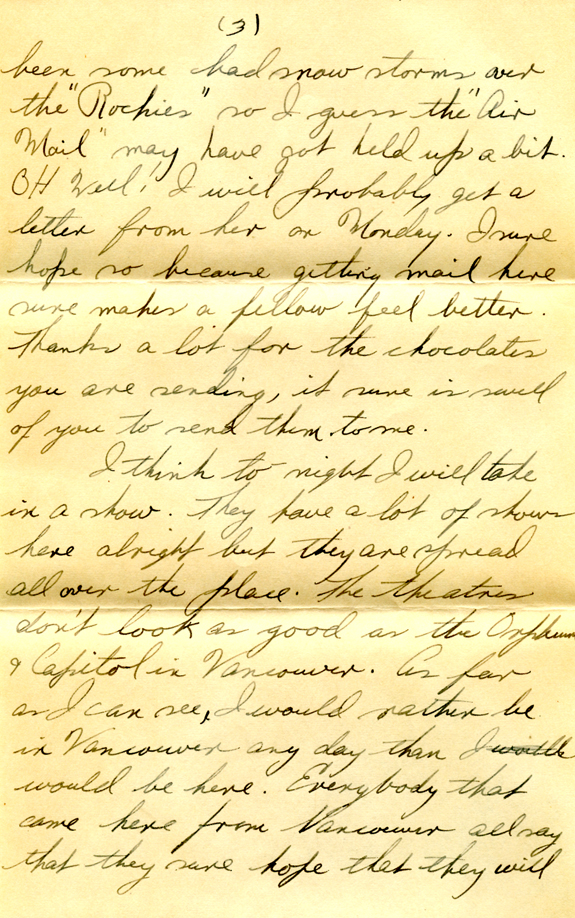 (3)
been some bad snow storms over
the "Rockies" so I guess the "Air
Mail" may have got held up a bit.
OH Well! I will probably get a
letter from her on Monday. I sure
hope so because getting mail here
sure makes a fellow feel better.
Thanks a lot for the chocolates
you are sending, it sure is swell
of you to send them to me.
I think to night I will take
in a show. They have a lot of shows
here alright but they are spread
all over the place. The theatres
don't look as good as the Orpheum
& Capitol in Vancouver. As far
as I can see, I would rather be
in Vancouver any day than I would
would be here. Everybody that
came here from Vancouver all say
that they sure hope that they will